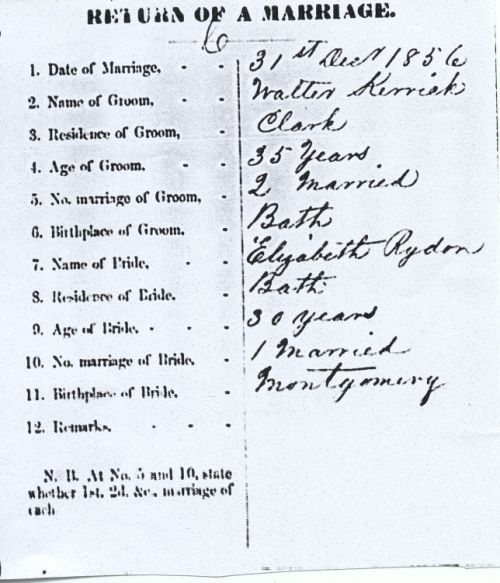 RETURN OF A MARRIAGE.
6
1. Date of Marriage, - - 31st Decr 1856
2. Name of Groom, - - Walter Kerrick
3. Residence of Groom, - Clark
4. Age of Groom, - - 35 Years
5. No. marriage of Groom, - 2 Married
6. Birthplace of Groom, - Bath
7. Name of Bride, - - Elizabeth Rydon
8. Residence of Bride. - Bath
9. Age of Bride. - - - 30 years
10. No. marriage of Bride. - 1 Married
11. Birthplace of Bride, - Montgomery
12. Remarks. - - -
N. B. At No. 5 and 10, state
whether 1st, 2d. &c. marriage of
each